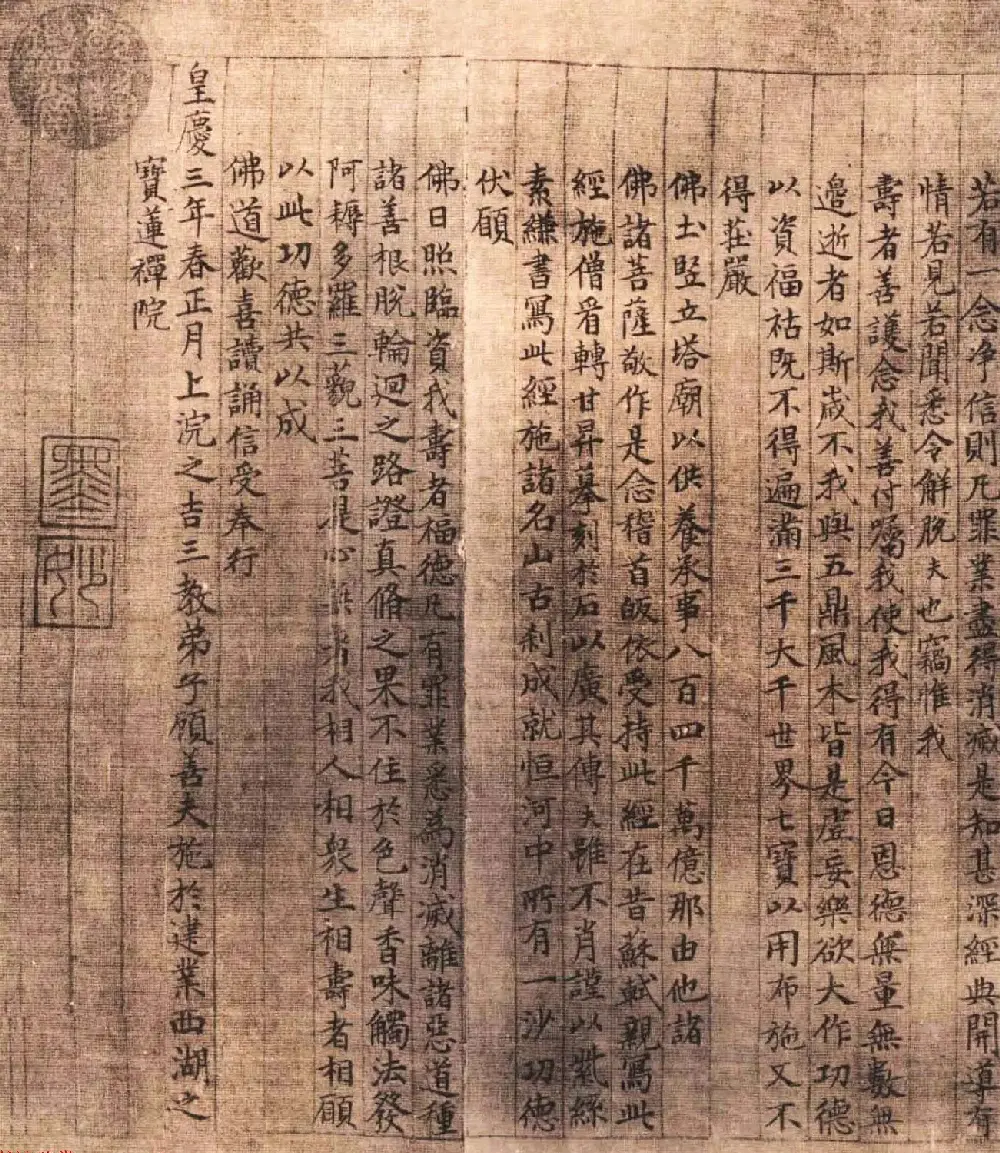 若有一念净信則凡罪業盡得消滅是知甚深經典開導有
情若見若聞悉令解脫夫也竊惟我
壽者善護念我善付囑我使我得有今日恩德無量無數無
邉逝者如斯歲不我與五鼎風木皆是虛妄樂欲大作功德
以資福祜既不得遍滿三千大千世界七寶以用布施又不
得莊嚴
佛土竪立塔廟以供養承事八百四千萬億那由他諸
佛諸菩薩敬作是念稽首皈依受持此經在昔蘇軾親寫此
經施僧看轉甘昇摹刻於石以廣其傳夫雖不肖謹以紫絲
素縑書寫此經施諸名山古刹成就恒河中所有一沙功德
伏願
佛日照臨資我壽者福德凡有罪業悉為消滅離諸惡道種
諸善根脫輪迴之路證真脩之果不住於色聲香味觸法發
阿耨多羅三藐三菩提心 我相人相衆生相壽者相願
以此功德共以成
佛道歡喜讀誦信受奉行
皇慶三年春正月上浣之吉三教弟子顧善夫施於建業西湖之
寶蓮禪院
墨妙